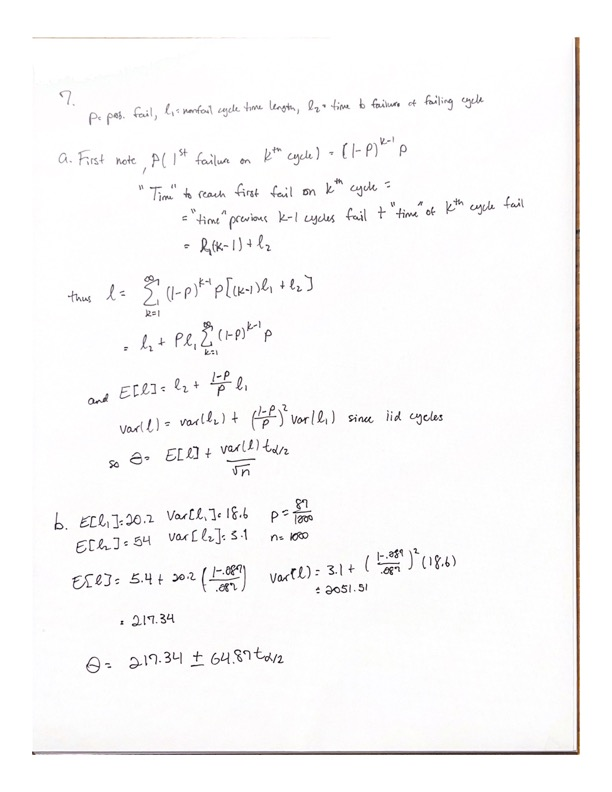 7.
p= pos. fail, l₁= nonfail cycle time length, l₂= time to failure of failing cycle
a. First note, P( 1st failure on kth cycle) = (1-P)^{k-1} p
"Time" to reach first fail on kth cycle =
= "time" previous k-1 cycles fail + "time" of kth cycle fail
= l₁(k-1) + l₂
thus l = ∑_{k=1}^{∞} (1-p)^{k-1} p[(k-1)l₁ + l₂]
= l₂ + Pl₁ ∑_{k=1}^{∞} (1-p)^{k-1} p
and E[l] = l₂ + \frac{1-P}{P} l₁
var(l) = var(l₂) + (\frac{1-P}{P})² var(l₁) since iid cycles
so θ= E[l] + \frac{var(l) t_{α/2}}{\sqrt{n}}
b. E[l₁]=20.2 Var[l₁]=18.6 p = \frac{87}{1000}
E[l₂]=54 var[l₂]=3.1 n=1000
E[l] = 5.4 + 20.2 (\frac{1-.087}{.087}) var(l) = 3.1 + (\frac{1-.087}{.087})² (18.6)
= 2051.51
= 217.34
θ= 217.34 ± 64.87 t_{α/2}